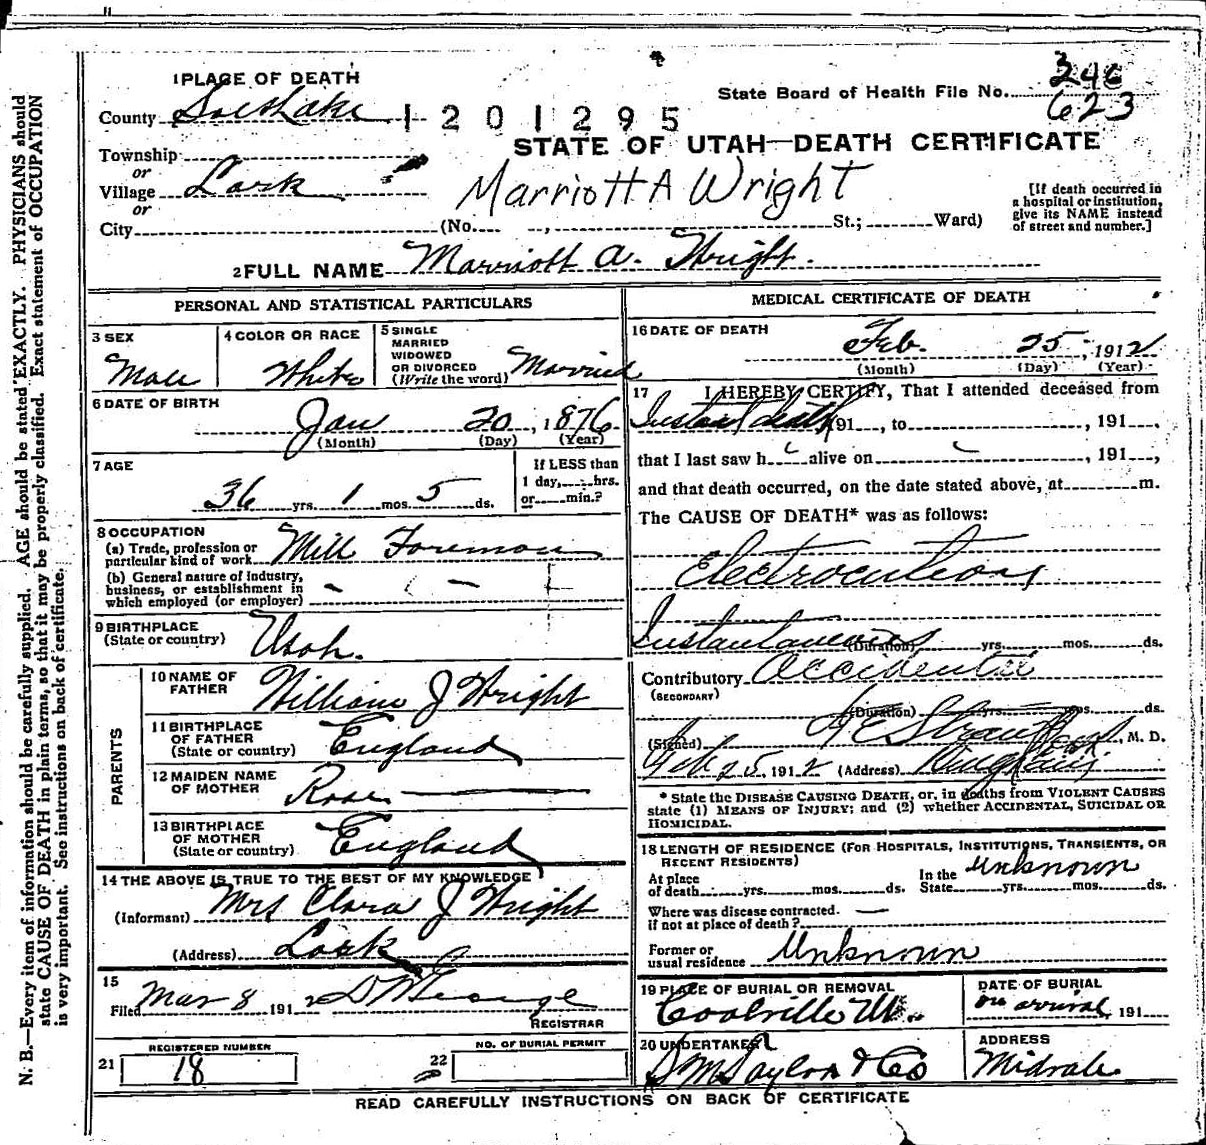 1 PLACE OF DEATH
State Board of Health File No. 246
623
County Salt Lake
1201295
STATE OF UTAH—DEATH CERTIFICATE
Township
or
Village Lark
Marriott A Wright
[If death occurred in a hospital or institution, give its NAME instead of street and number.]
or
City (No. , St.; Ward)
2 FULL NAME Marriott A. Wright.
PERSONAL AND STATISTICAL PARTICULARS
3 SEX
Male
4 COLOR OR RACE
White
5 SINGLE
MARRIED
WIDOWED
OR DIVORCED
(Write the word) Married
6 DATE OF BIRTH
Jan 20, 1876
(Month) (Day) (Year)
7 AGE
36 yrs. 1 mos. 5 ds.
If LESS than
1 day, hrs.
or min.?
8 OCCUPATION
(a) Trade, profession or
particular kind of work Mill Foreman
(b) General nature of industry,
business, or establishment in
which employed (or employer)
9 BIRTHPLACE
(State or country) Utah.
PARENTS
10 NAME OF
FATHER William J Wright
11 BIRTHPLACE
OF FATHER
(State or country) England
12 MAIDEN NAME
OF MOTHER Rose
13 BIRTHPLACE
OF MOTHER
(State or country) England
14 THE ABOVE IS TRUE TO THE BEST OF MY KNOWLEDGE
(Informant) Mrs Clara J Wright
(Address) Lark
15
Filed Mar 8 1912
REGISTRAR
REGISTERED NUMBER
21 18
NO. OF BURIAL PERMIT
22
MEDICAL CERTIFICATE OF DEATH
16 DATE OF DEATH
Feb. 25, 1912
(Month) (Day) (Year)
17 I HEREBY CERTIFY, That I attended deceased from
Instant death 191 , to , 191 ,
that I last saw h alive on , 191 ,
and that death occurred, on the date stated above, at m.
The CAUSE OF DEATH* was as follows:
Electrocution
Instantaneous (Duration) yrs. mos. ds.
Contributory Accidental
(SECONDARY)
(Duration) yrs. mos. ds.
(Signed) , M. D.
Feb 25, 1912 (Address) Bingham
* State the DISEASE CAUSING DEATH, or, in deaths from VIOLENT CAUSES
state (1) MEANS OF INJURY; and (2) whether ACCIDENTAL, SUICIDAL OR
HOMICIDAL.
18 LENGTH OF RESIDENCE (FOR HOSPITALS, INSTITUTIONS, TRANSIENTS, OR
RECENT RESIDENTS)
At place
of death yrs. mos. ds.
In the
State unknown yrs. mos. ds.
Where was disease contracted.
if not at place of death? —
Former or
usual residence Unknown
19 PLACE OF BURIAL OR REMOVAL
Coalville
DATE OF BURIAL
on arrival, 191
20 UNDERTAKER
S M Taylor & Co
ADDRESS
Midvale
READ CAREFULLY INSTRUCTIONS ON BACK OF CERTIFICATE
N. B.—Every item of information should be carefully supplied. AGE should be stated EXACTLY. PHYSICIANS should
state CAUSE OF DEATH in plain terms, so that it may be properly classified. Exact statement of OCCUPATION
is very important. See instructions on back of certificate.